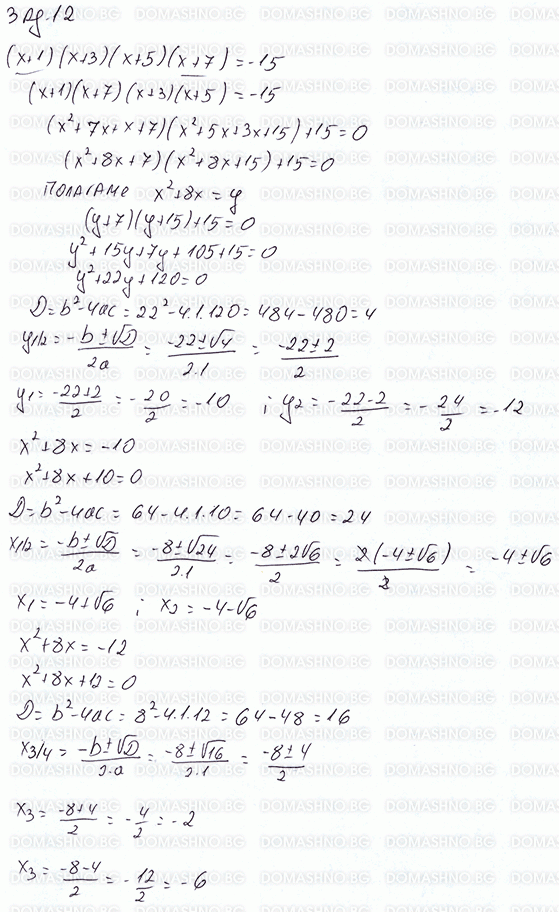 Зад.12
(x+1)(x+3)(x+5)(x+7)=-15
(x+1)(x+7)(x+3)(x+5)=-15
(x²+7x+x+7)(x²+5x+3x+15)+15=0
(x²+8x+7)(x²+8x+15)+15=0
ПОЛАГАМЕ x²+8x=y
(y+7)(y+15)+15=0
y²+15y+7y+105+15=0
y²+22y+120=0
D=b²-4ac=22²-4.1.120=484-480=4
y1/2=-b±√D/2a=-22±√4/2.1=-22±2/2
y1=-22+2/2=-20/2=-10 ; y2=-22-2/2=-24/2=-12
x²+8x=-10
x²+8x+10=0
D=b²-4ac=64-4.1.10=64-40=24
x1/2=-b±√D/2a=-8±√24/2.1=-8±2√6/2=2(-4±√6)/2=-4±√6
x1=-4+√6 ; x2=-4-√6
x²+8x=-12
x²+8x+12=0
D=b²-4ac=8²-4.1.12=64-48=16
x3/4=-b±√D/2.a=-8±√16/2.1=-8±4/2
x3=-8+4/2=-4/2=-2
x3=-8-4/2=-12/2=-6
DOMASHNO.BG